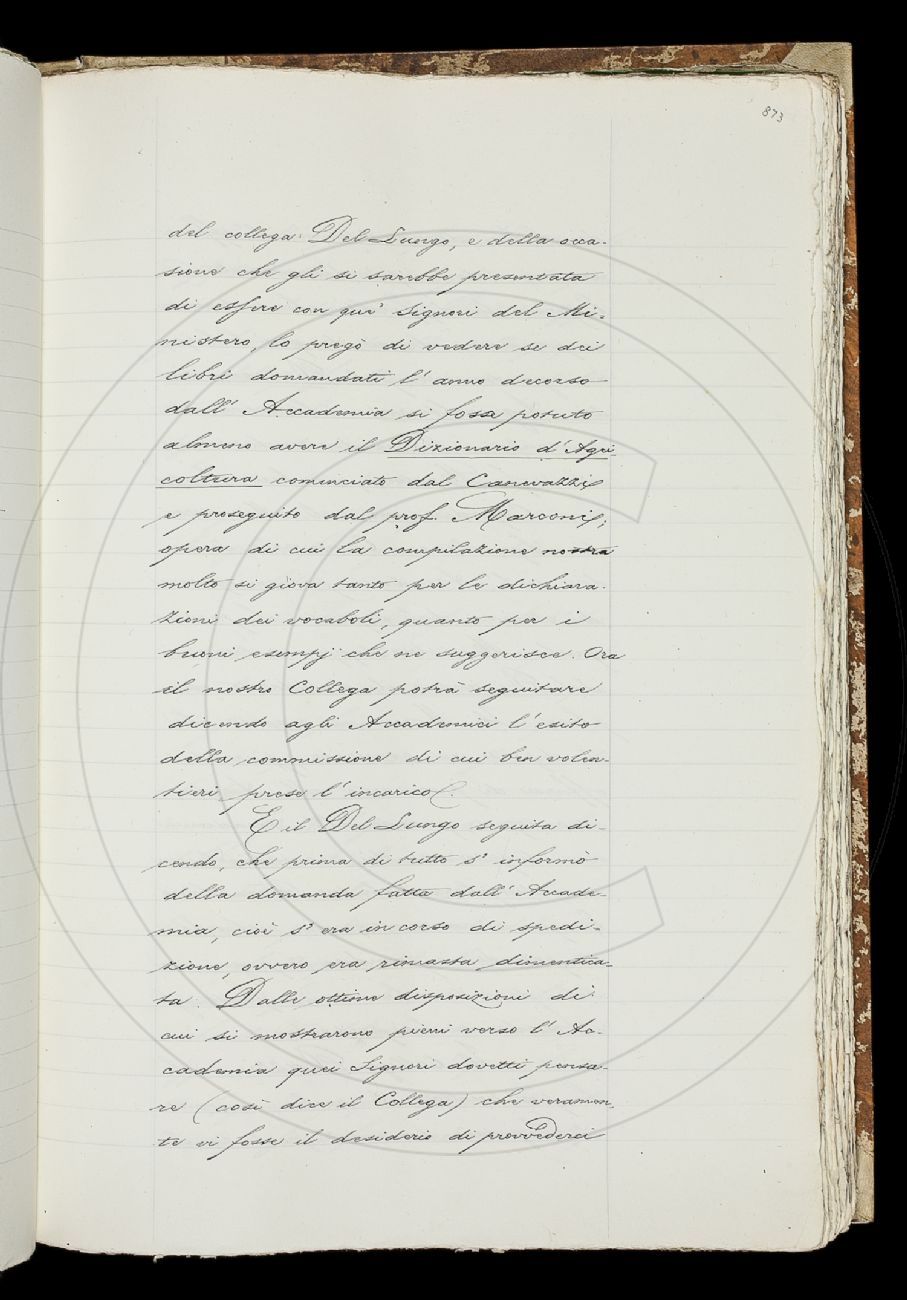 873
del collega Del Lungo, e della occa-
sione che gli si sarebbe presentata
di essere con que' Signori del Mi-
nistero, lo pregò di vedere se dei
libri domandati l'anno decorso
dall'Accademia si fosse potuto
almeno avere il Dizionario d'Agri-
coltura cominciato dal Canevazzi
e proseguito dal prof. Marconi;
opera di cui la compilazione nostra
molto si giova tanto per le dichiara-
zioni dei vocaboli, quanto per i
buoni esempj che ne suggerisce. Ora
il nostro Collega potrà seguitare
dicendo agli Accademici l'esito
della commissione di cui ben volen-
tieri prese l'incarico.
E il Del Lungo seguita di-
cendo, che prima di tutto s'informò
della domanda fatta dall'Accade-
mia, cioè s'era in corso di spedi-
zione, ovvero era rimasta dimentica-
ta. Dalle ottime disposizioni di
cui si mostrarono pieni verso l'Ac-
cademia quei Signori dovetti pensa-
re (così dice il Collega) che veramen-
te vi fosse il desiderio di provvederci